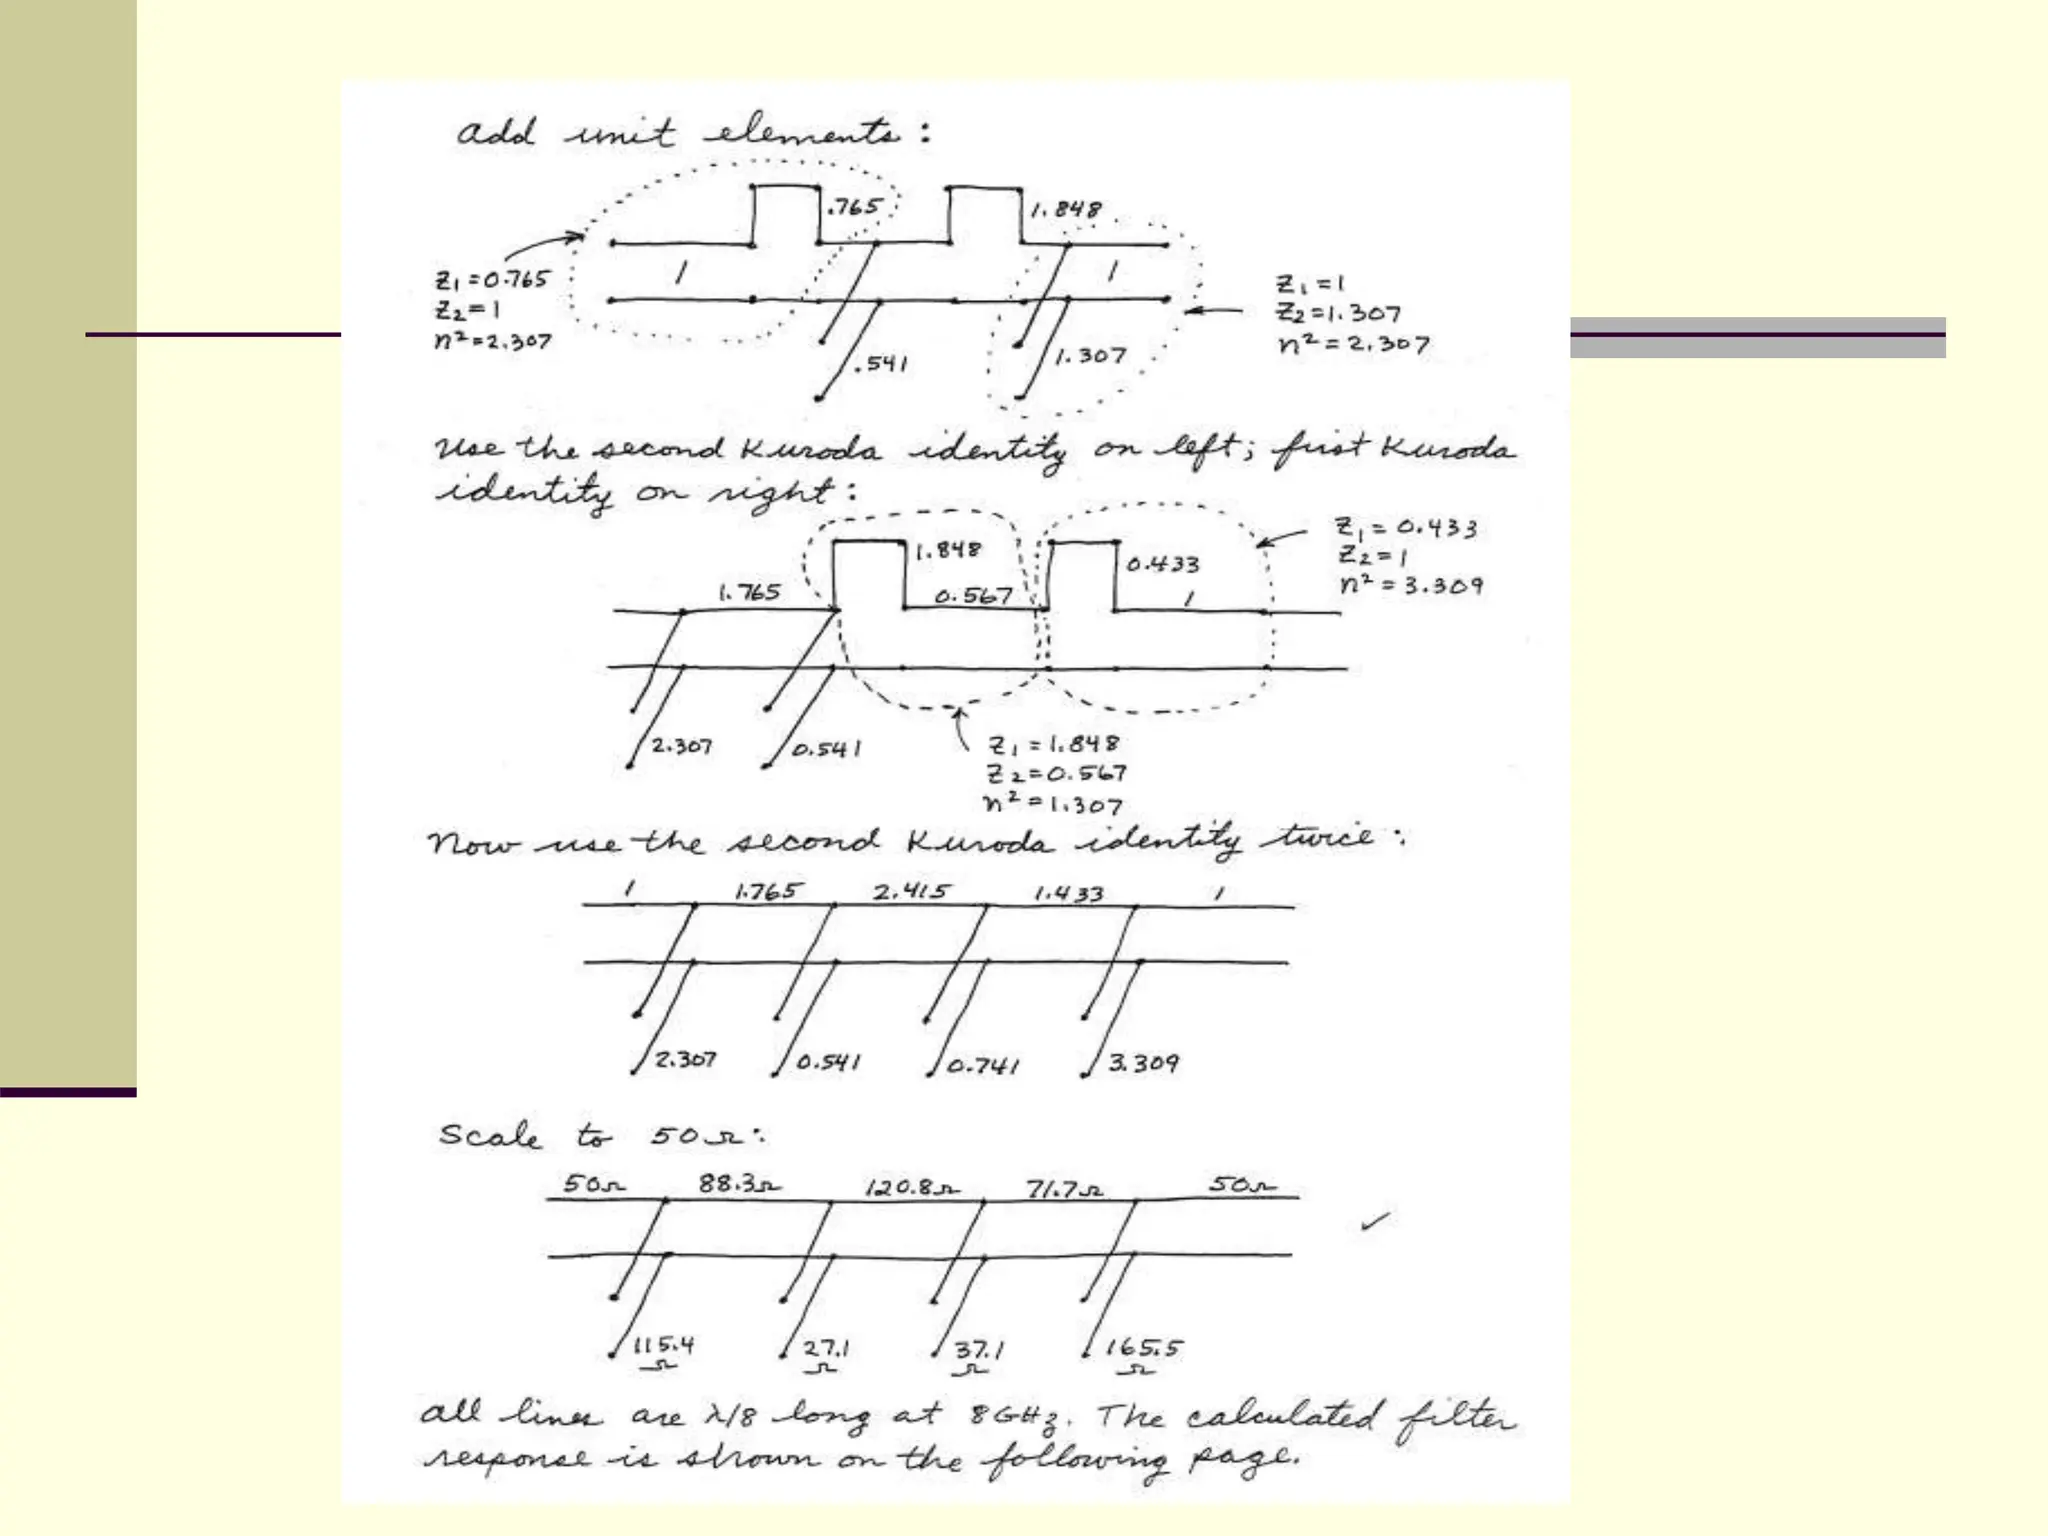 add unit elements:
.765
1.848
Z1 = 0.765
Z2 = 1
n² = 2.307
1
1
Z1 = 1
Z2 = 1.307
n² = 2.307
.541
1.307
Use the second Kuroda identity on left; first Kuroda
identity on right:
1.848
0.433
Z1 = 0.433
Z2 = 1
n² = 3.309
1.765
0.567
1
2.307
0.541
Z1 = 1.848
Z2 = 0.567
n² = 1.307
Now use the second Kuroda identity twice:
1 1.765 2.415 1.433 1
2.307 0.541 0.741 3.309
Scale to 50Ω:
50Ω 88.3Ω 120.8Ω 71.7Ω 50Ω
✓
115.4 27.1 37.1 165.5
Ω Ω Ω Ω
all lines are λ/8 long at 8GHz. The calculated filter
response is shown on the following page.